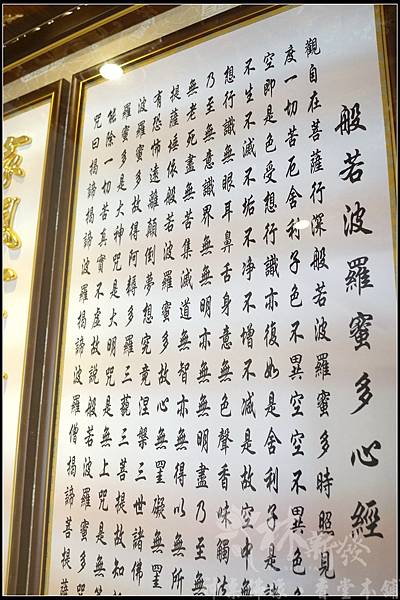 般若波羅蜜多心經
觀自在菩薩行深般若波羅蜜多時照見
度一切苦厄舍利子色不異空空不異色
空即是色受想行識亦復如是舍利子是諸
不生不滅不垢不淨不增不減是故空中無
想行識無眼耳鼻舌身意無色聲香味觸法
乃至無意識界無無明亦無無明盡乃至無
無老死盡無苦集滅道無智亦無得以無所
提薩埵依般若波羅蜜多故心無罣礙無罣
有恐怖遠離顛倒夢想究竟涅槃三世諸佛
波羅蜜多故得阿耨多羅三藐三菩提故知
羅蜜多是大神咒是大明咒是無上咒是
能除一切苦真實不虛故說般若波羅蜜多
咒曰揭諦揭諦波羅揭諦波羅僧揭諦菩提